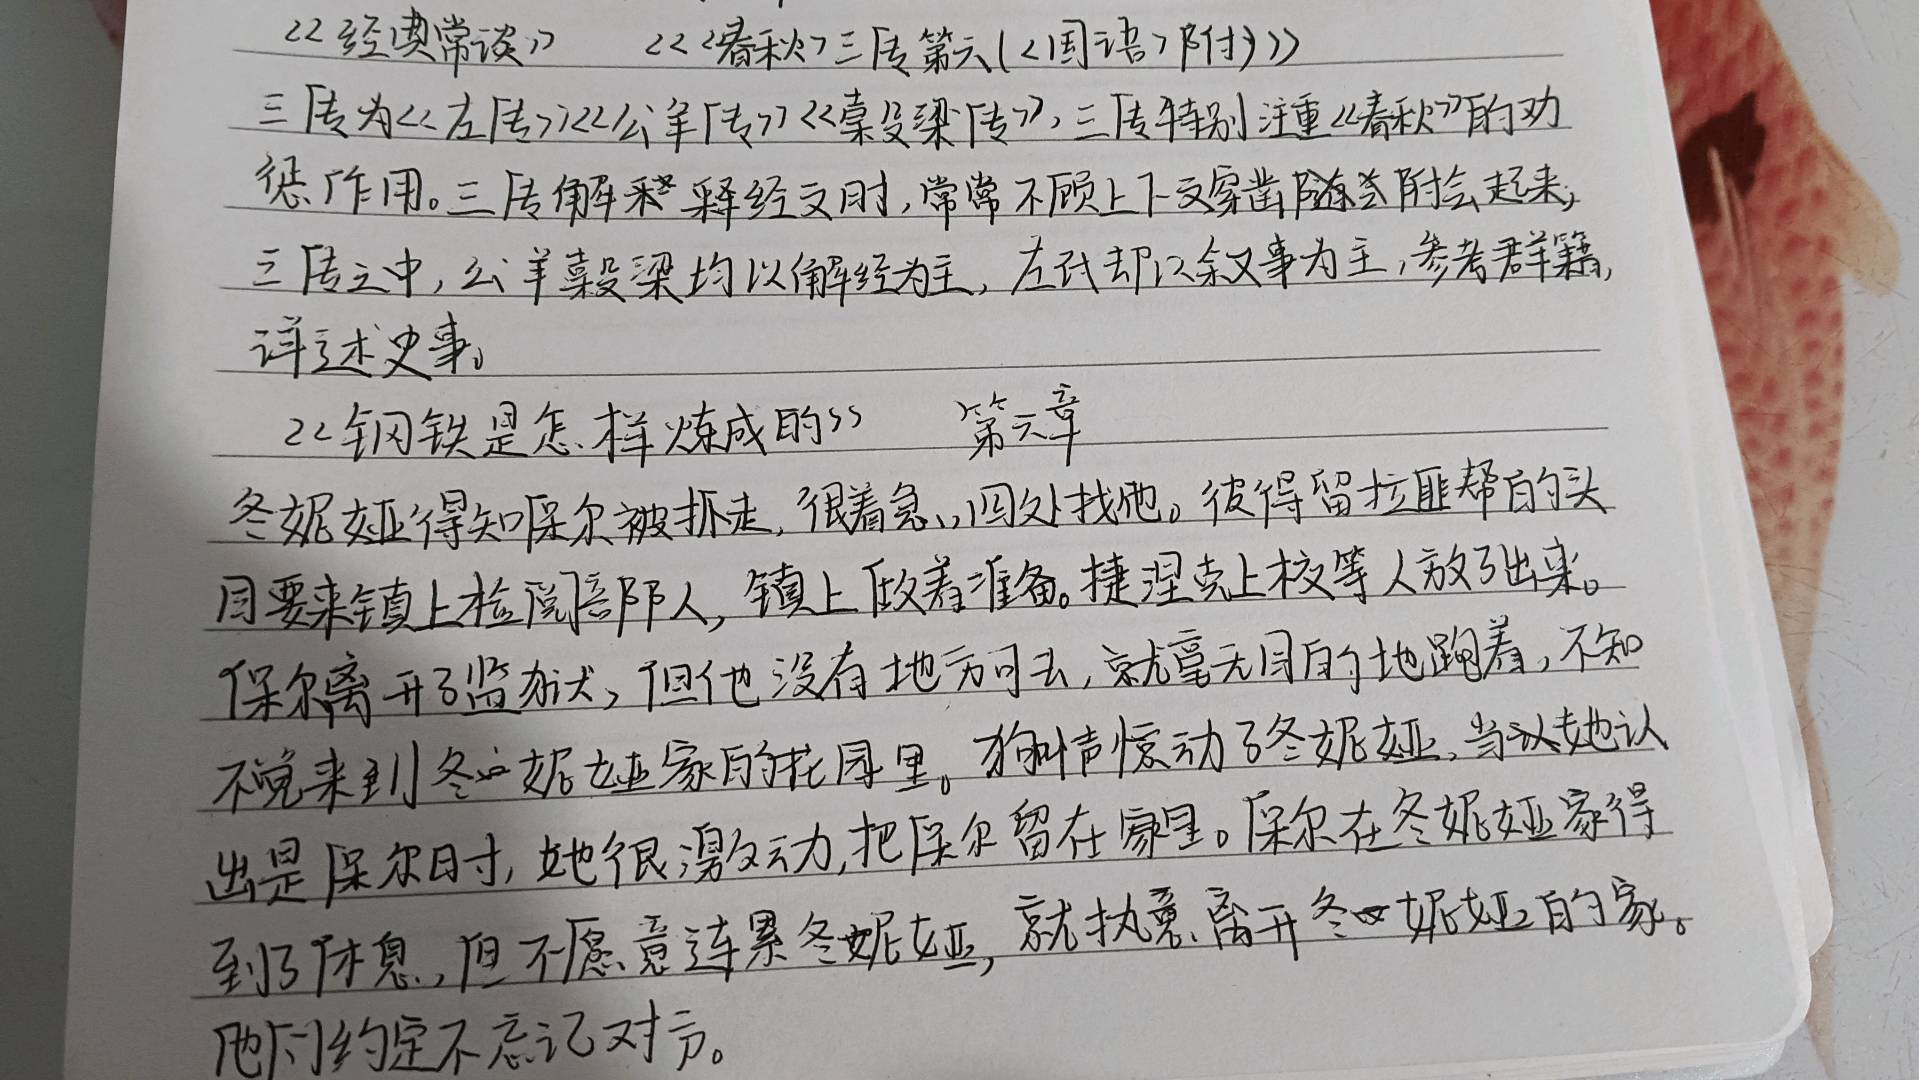 <<经典常谈>> <<<春秋>三传第六(<国语>附)>>
三传为<<左传>><<公羊传>><<穀梁传>>,三传特别注重<<春秋>>的劝
惩作用。三传解释经文时,常常不顾上下文穿凿附会起来,
三传之中,公羊穀梁均以解经为主,左氏却以叙事为主,参考群籍,
详述史事。
<<钢铁是怎样炼成的>> 第六章
冬妮娅得知保尔被抓走,很着急,四处找他。彼得留拉匪帮的头
目要来镇上检阅部队人,镇上做着准备。捷涅克上校等人放了出来。
保尔离开了监狱,但他没有地方可去,就毫无目的地跑着,不知
不觉来到冬妮娅家的花园里。狗叫声惊动了冬妮娅,当她认
出是保尔时,她很激动,把保尔留在家里。保尔在冬妮娅家得
到了休息,但不愿意连累冬妮娅,就执意离开冬妮娅的家。
他们约定不忘记对方。